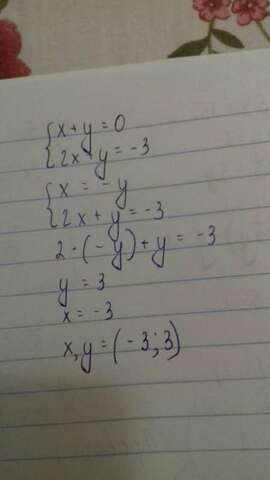 {x+y=0
{2x+y=-3
{x=-y
{2x+y=-3
2·(-y)+y=-3
y=3
x=-3
x,y=(-3;3)